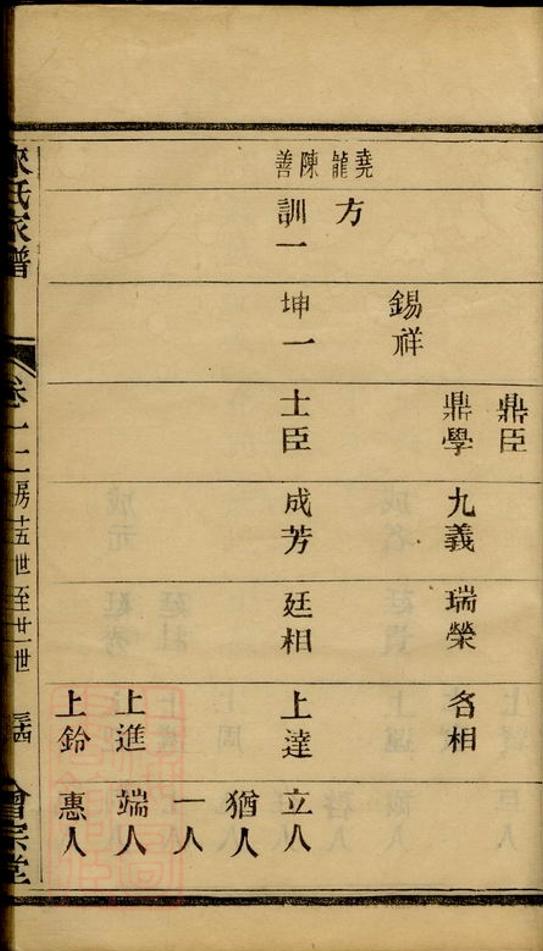 堯龍
陳善
方
訓一
錫祥
坤一
鼎臣
鼎學
士臣
九義
成芳
瑞榮
廷相
名相
上達
上進
上鈴
立人
猶人
一人
端人
惠人
來氏家譜
卷一
房十五世至廿一世
會宗堂